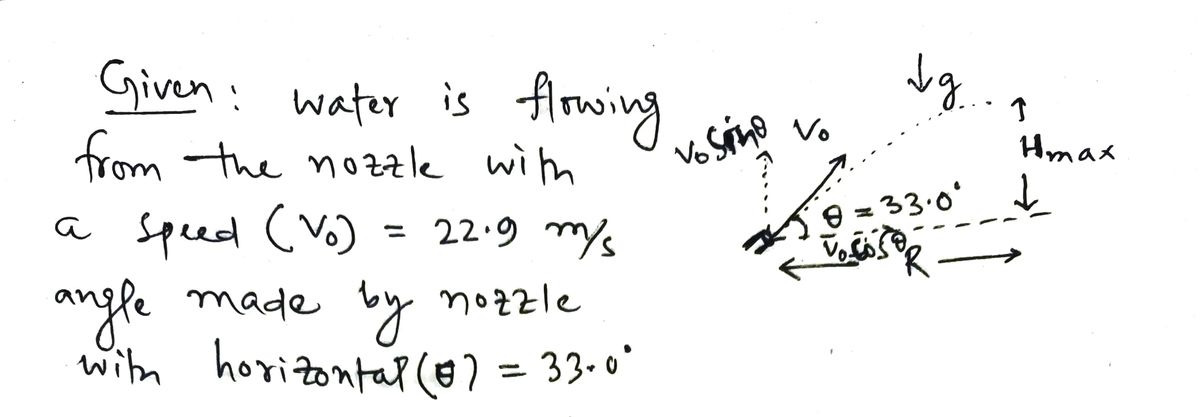 Given: water is flowing
from the nozzle with
a speed (V₀) = 22.9 m/s
angle made by nozzle
with horizontal (θ) = 33.0°
↓g
V₀ sinθ
V₀
Hmax
θ = 33.0°
V₀ cosθ
R